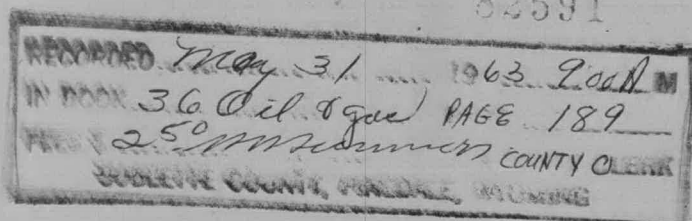 RECORDED May 31 1963 9:00 A M
IN BOOK 36 Oil & gas PAGE 189
FEES $ 2.50 COUNTY CLERK
SUBLETTE COUNTY, PINEDALE, WYOMING